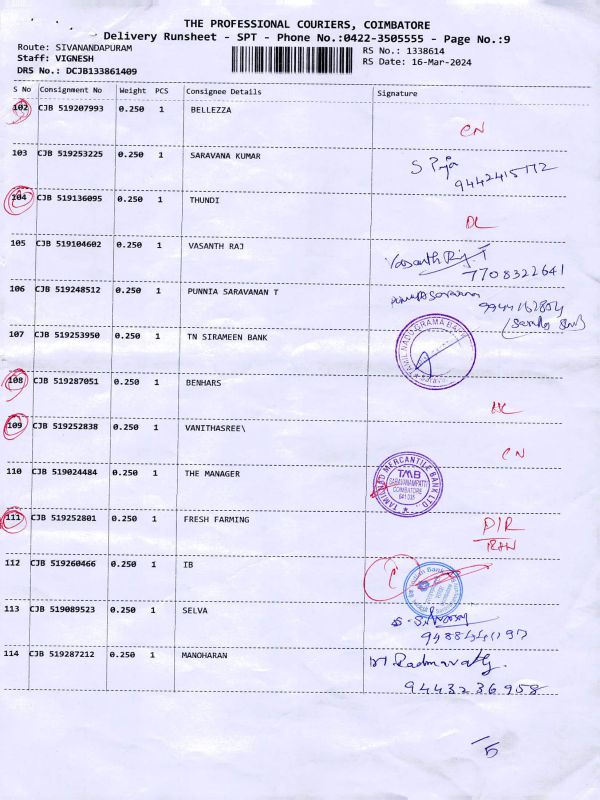 THE PROFESSIONAL COURIERS, COIMBATORE
Delivery Runsheet - SPT - Phone No.:0422-3505555 - Page No.:9
Route: SIVANANDAPURAM
RS No.: 1338614
Staff: VIGNESH
RS Date: 16-Mar-2024
DRS No.: DCJB133861409
S No Consignment No Weight PCS Consignee Details Signature
102 CJB 519207993 0.250 1 BELLEZZA
CN
103 CJB 519253225 0.250 1 SARAVANA KUMAR
104 CJB 519136095 0.250 1 THUNDI
DL
105 CJB 519104602 0.250 1 VASANTH RAJ
Vasanth Raj T
7708322641
106 CJB 519248512 0.250 1 PUNNIA SARAVANAN T
107 CJB 519253950 0.250 1 TN SIRAMEEN BANK
TAMIL NADU GRAMA BANK
108 CJB 519287051 0.250 1 BENHARS
109 CJB 519252838 0.250 1 VANITHASREE\
CN
110 CJB 519024484 0.250 1 THE MANAGER
TAMILNAD MERCANTILE BANK LTD.
TMB
SARAVANAMPATTI
COIMBATORE
641 035
111 CJB 519252801 0.250 1 FRESH FARMING
112 CJB 519260466 0.250 1 IB
113 CJB 519089523 0.250 1 SELVA
114 CJB 519287212 0.250 1 MANOHARAN
9443236958
5